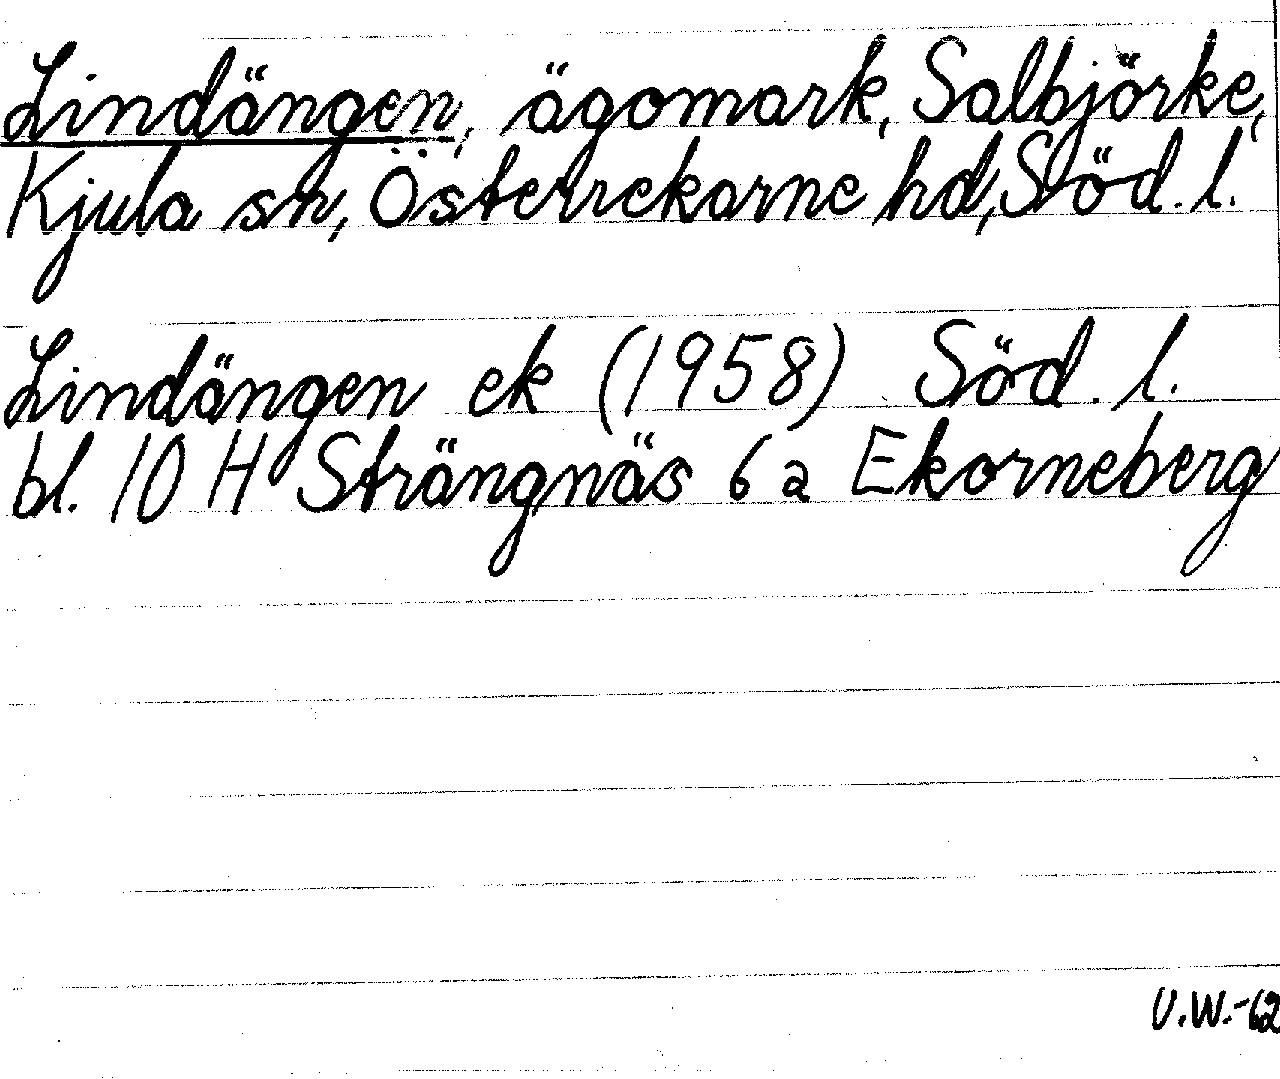 Lindängen, ägomark, Salbjörke,
Kjula sn, Österrekarne hd, Söd. l.
Lindängen ek (1958) Söd. l.
bl. 10 H Strängnäs 6 a Ekorneberg
U.W.-62